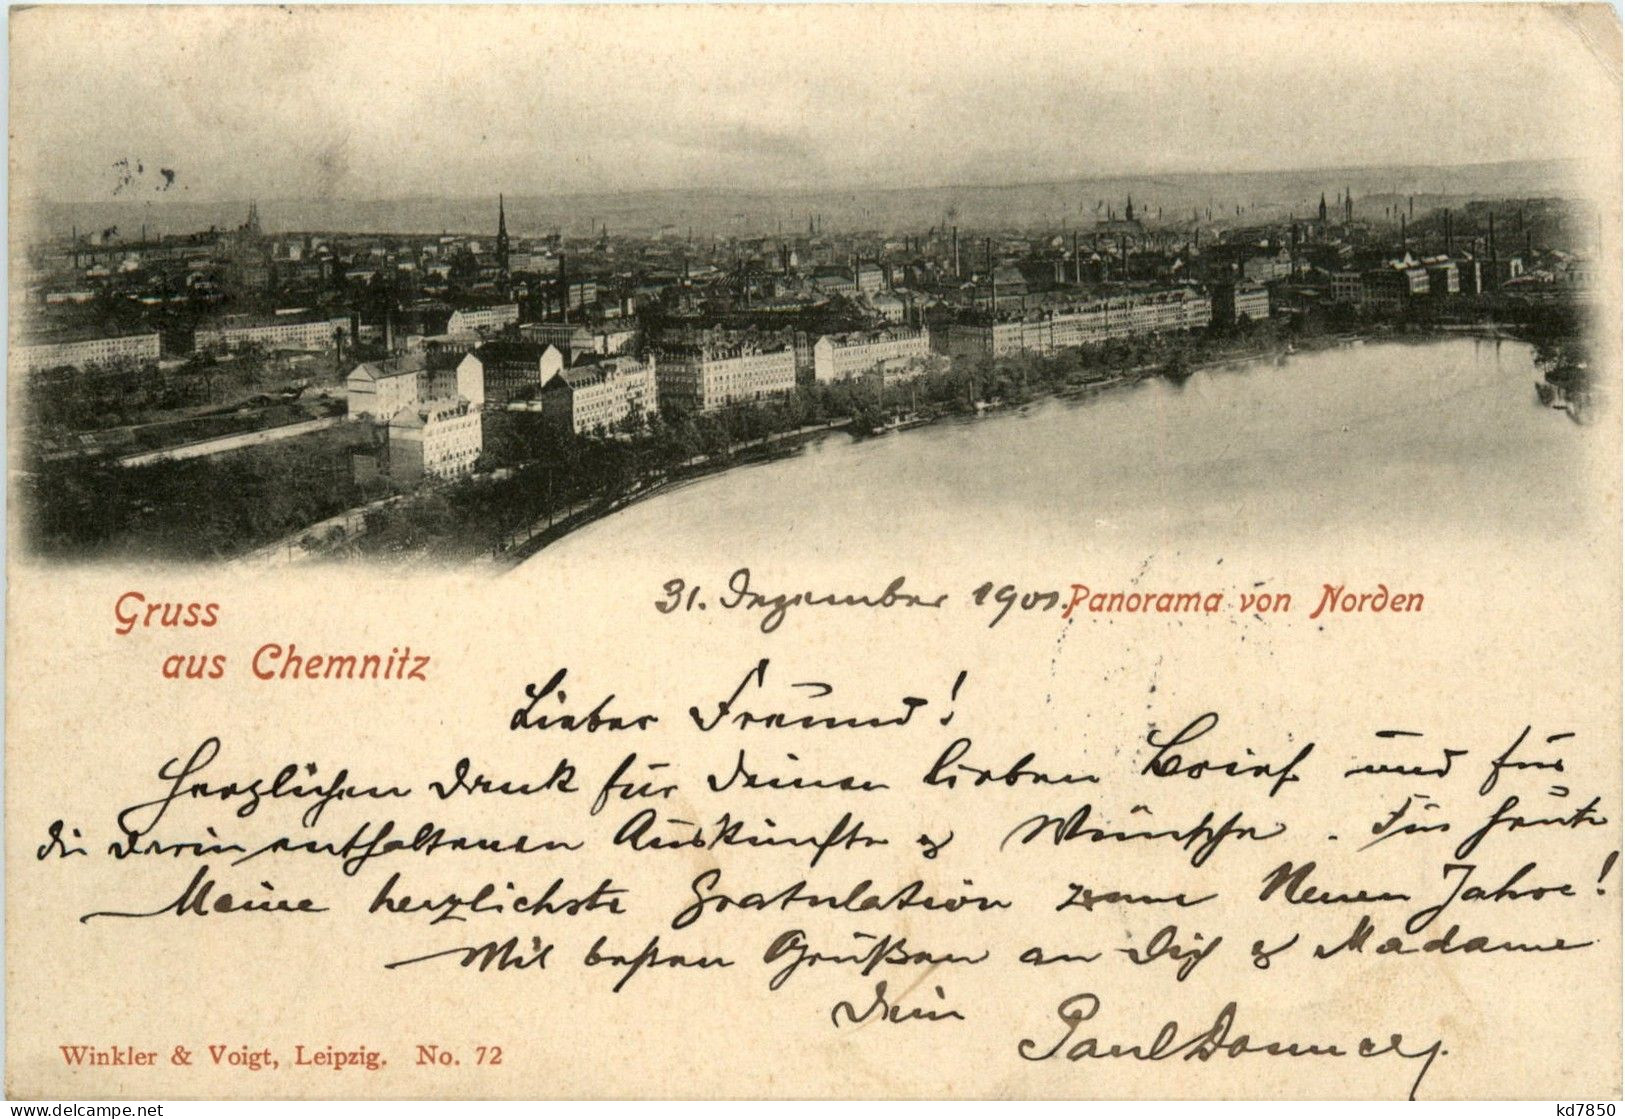 Gruss
aus Chemnitz
31. Dezember 190
Panorama von Norden
Lieber Freund!
Herzlichen Dank für Deinen lieben Brief und für
die darin enthaltenen Auskünfte & Wünsche. Für heute
Meine herzlichste Gratulation zum Neuen Jahre!
Mit besten Grüßen an Dich & Madame
Dein
Paul
Winkler & Voigt, Leipzig. No. 72
delcampe.net
kd7850